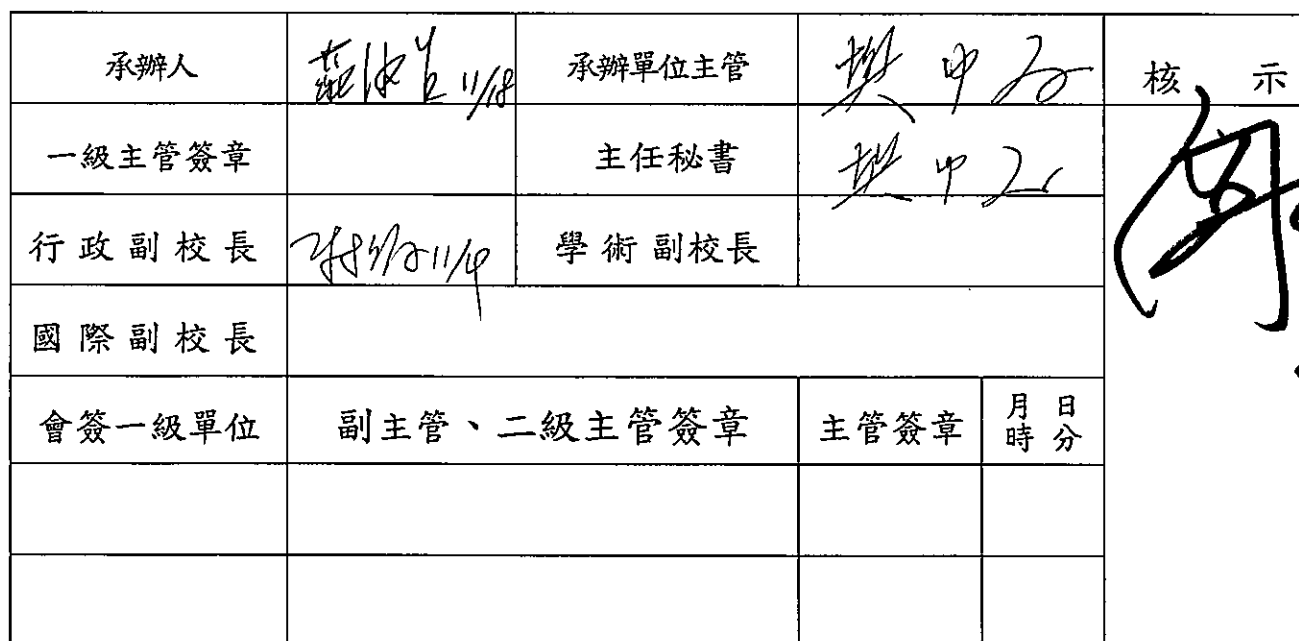 承辦人 11/18 承辦單位主管 樊中 核示
一級主管簽章 主任秘書 樊中
行政副校長 11/19 學術副校長
國際副校長
會簽一級單位 副主管、二級主管簽章 主管簽章 月日
時分